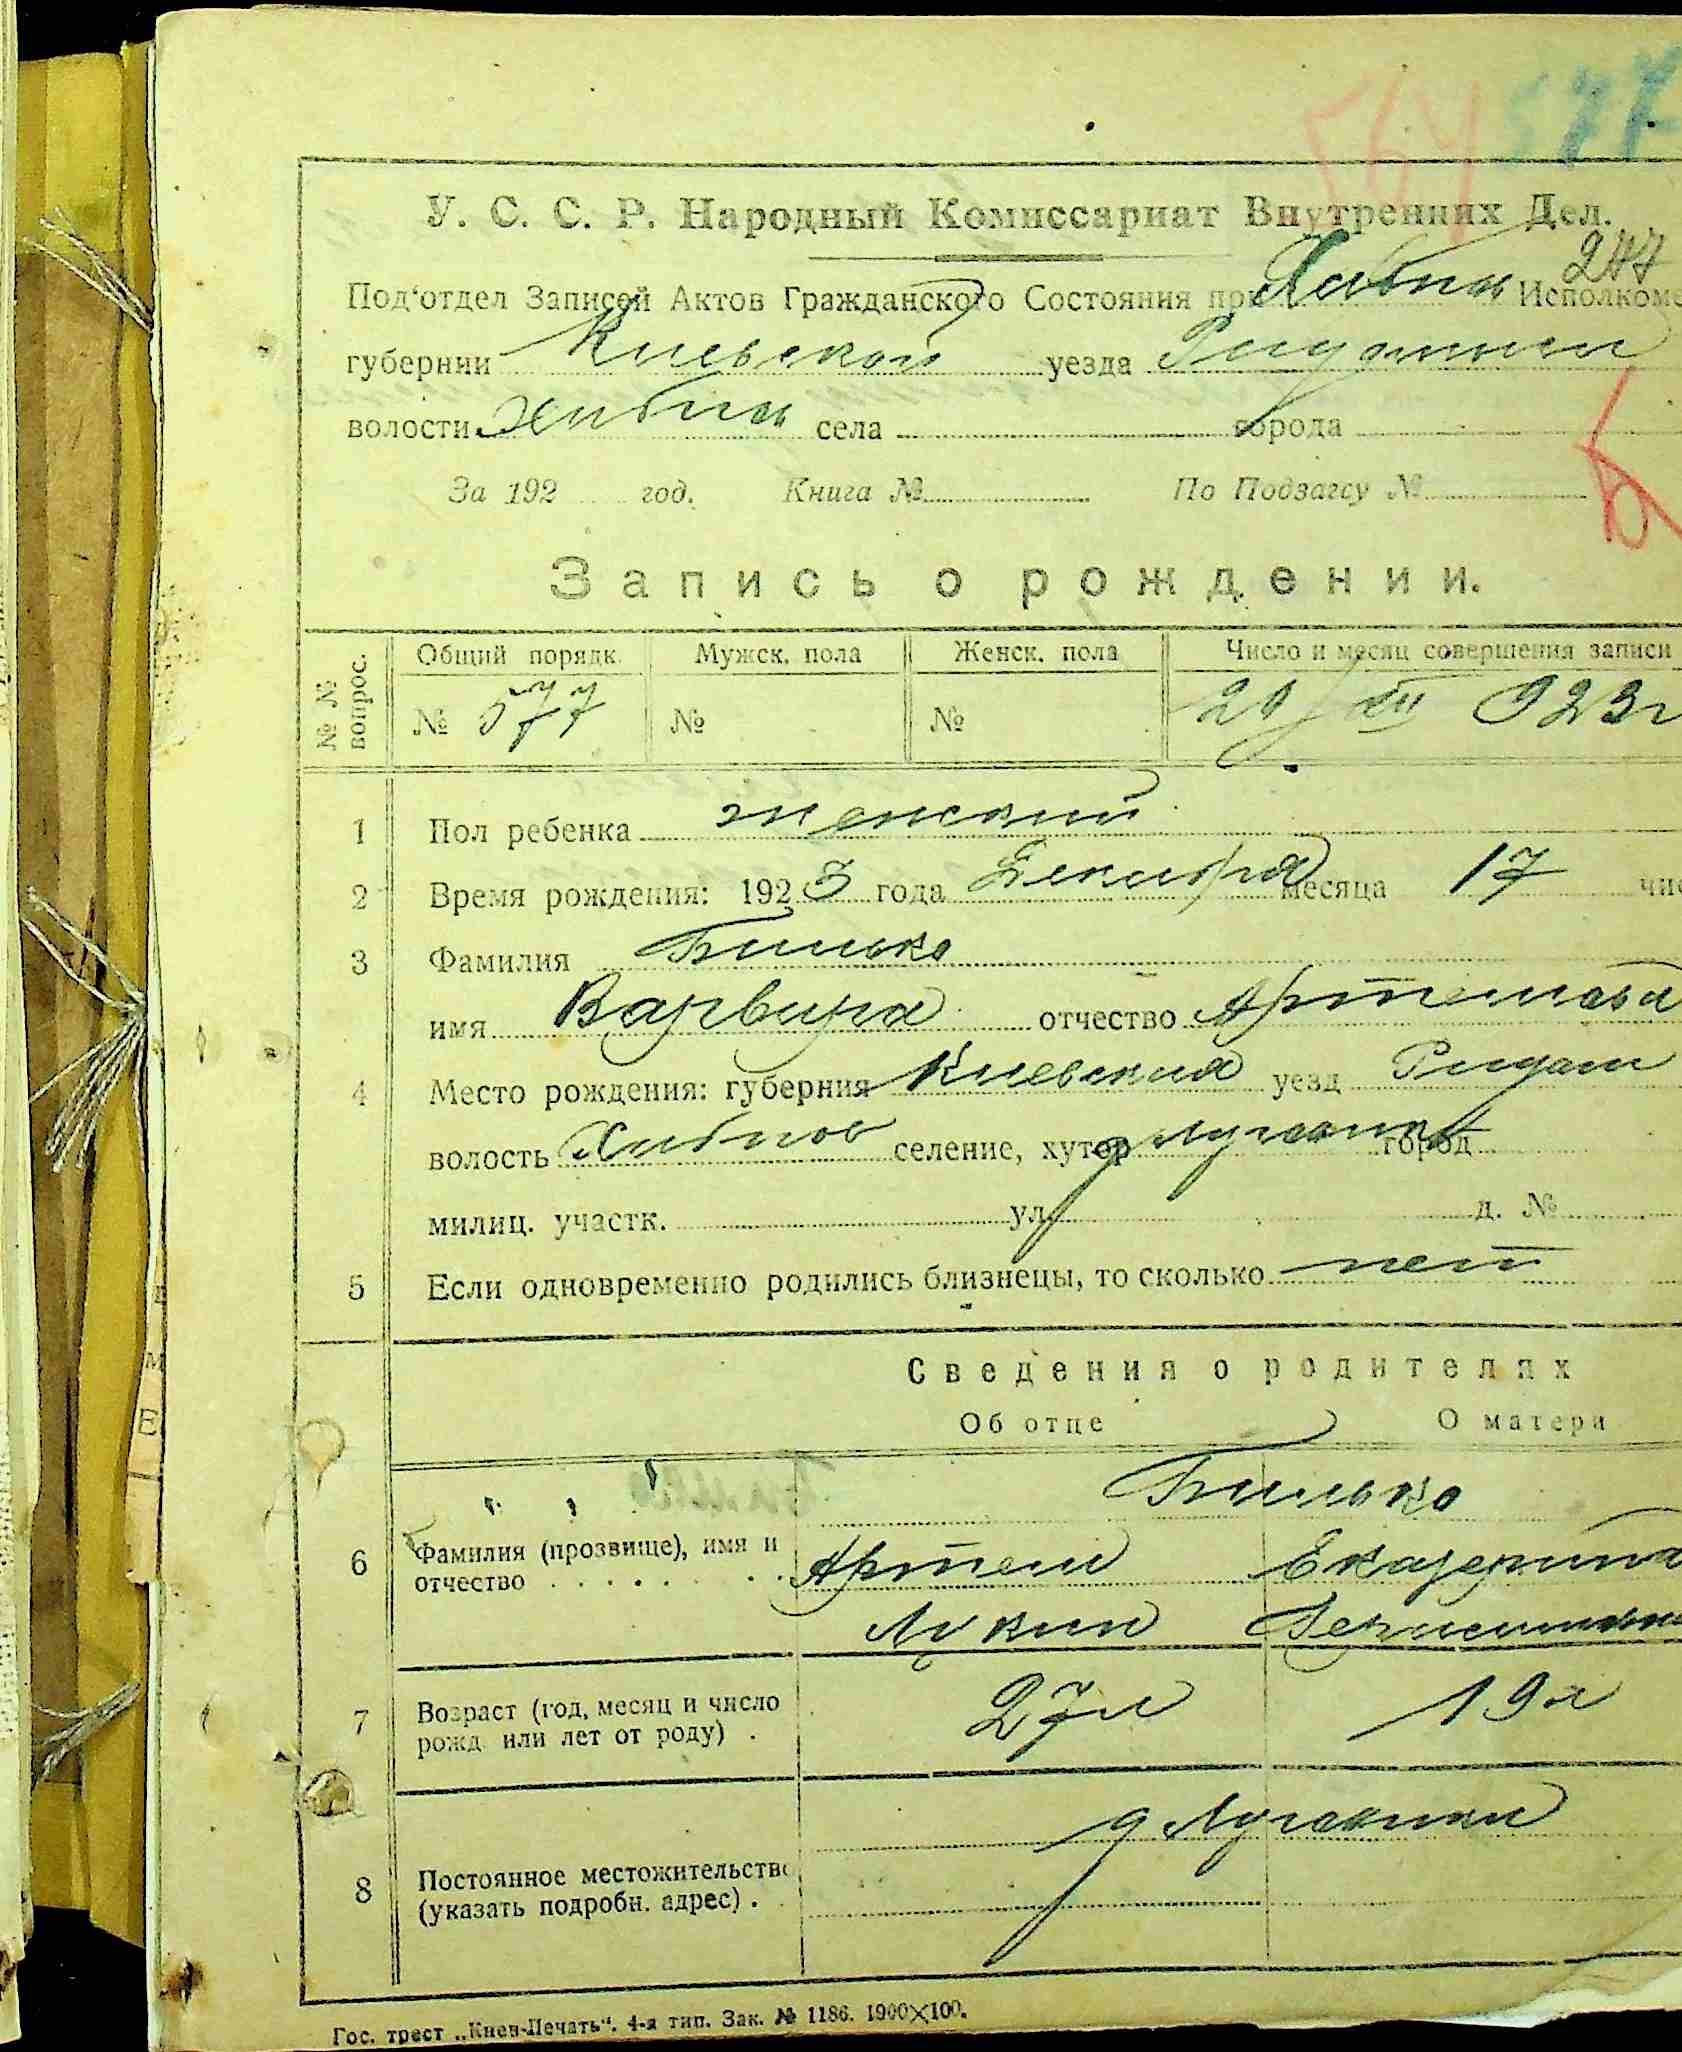 564 577
У. С. С. Р. Народный Комиссариат Внутренних Дел.
277
Под'отдел Записей Актов Гражданского Состояния при Хабны Исполкоме
губернии Киевской уезда
волости Хабны села города
За 192 год. Книга № По Подзагсу №
Запись о рождении.
№ № вопрос. Общий порядк. Мужск. пола Женск. пола Число и месяц совершения записи
№ 577 № № 29/XII 923г
1 Пол ребенка женский
2 Время рождения: 1923 года Декабря месяца 17 чис
3 Фамилия Билько
имя Варвара отчество Артемова
4 Место рождения: губерния Киевская уезд Радом
волость Хабнов селение, хутор город
милиц. участк. ул. д. №
5 Если одновременно родились близнецы, то сколько нет
Сведения о родителях
Об отце О матери
Билько
6 Фамилия (прозвище), имя и отчество Артем Екатерина
Лукин
7 Возраст (год, месяц и число рожд. или лет от роду) 27л 19л
д Луговики
8 Постоянное местожительство (указать подробн. адрес).
Гос. трест „Киев-Печать". 4-я тип. Зак. № 1186. 1900×100.